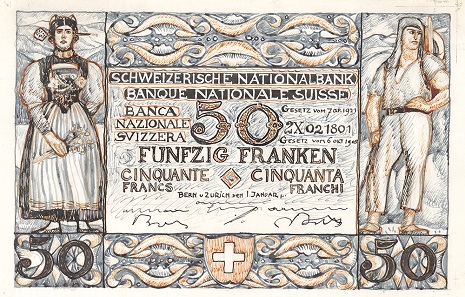 SCHWEIZERISCHE NATIONALBANK
BANQUE NATIONALE SUISSE
BANCA
NAZIONALE
SVIZZERA
50
GESETZ VOM 7 AP. 1921
2X 021801
GESETZ VOM 6 OKT
FÜNFZIG FRANKEN
CINQUANTE
FRANCS
CINQUANTA
FRANCHI
BERN U ZÜRICH DEN 1 JANUAR
50
50